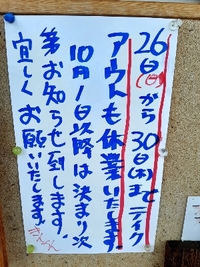 26日(日)から30日(木)までテイク
アウトも休業いたします
10月1日以降は決まり次
第お知らせ到します!
宜しくお願いいたします。